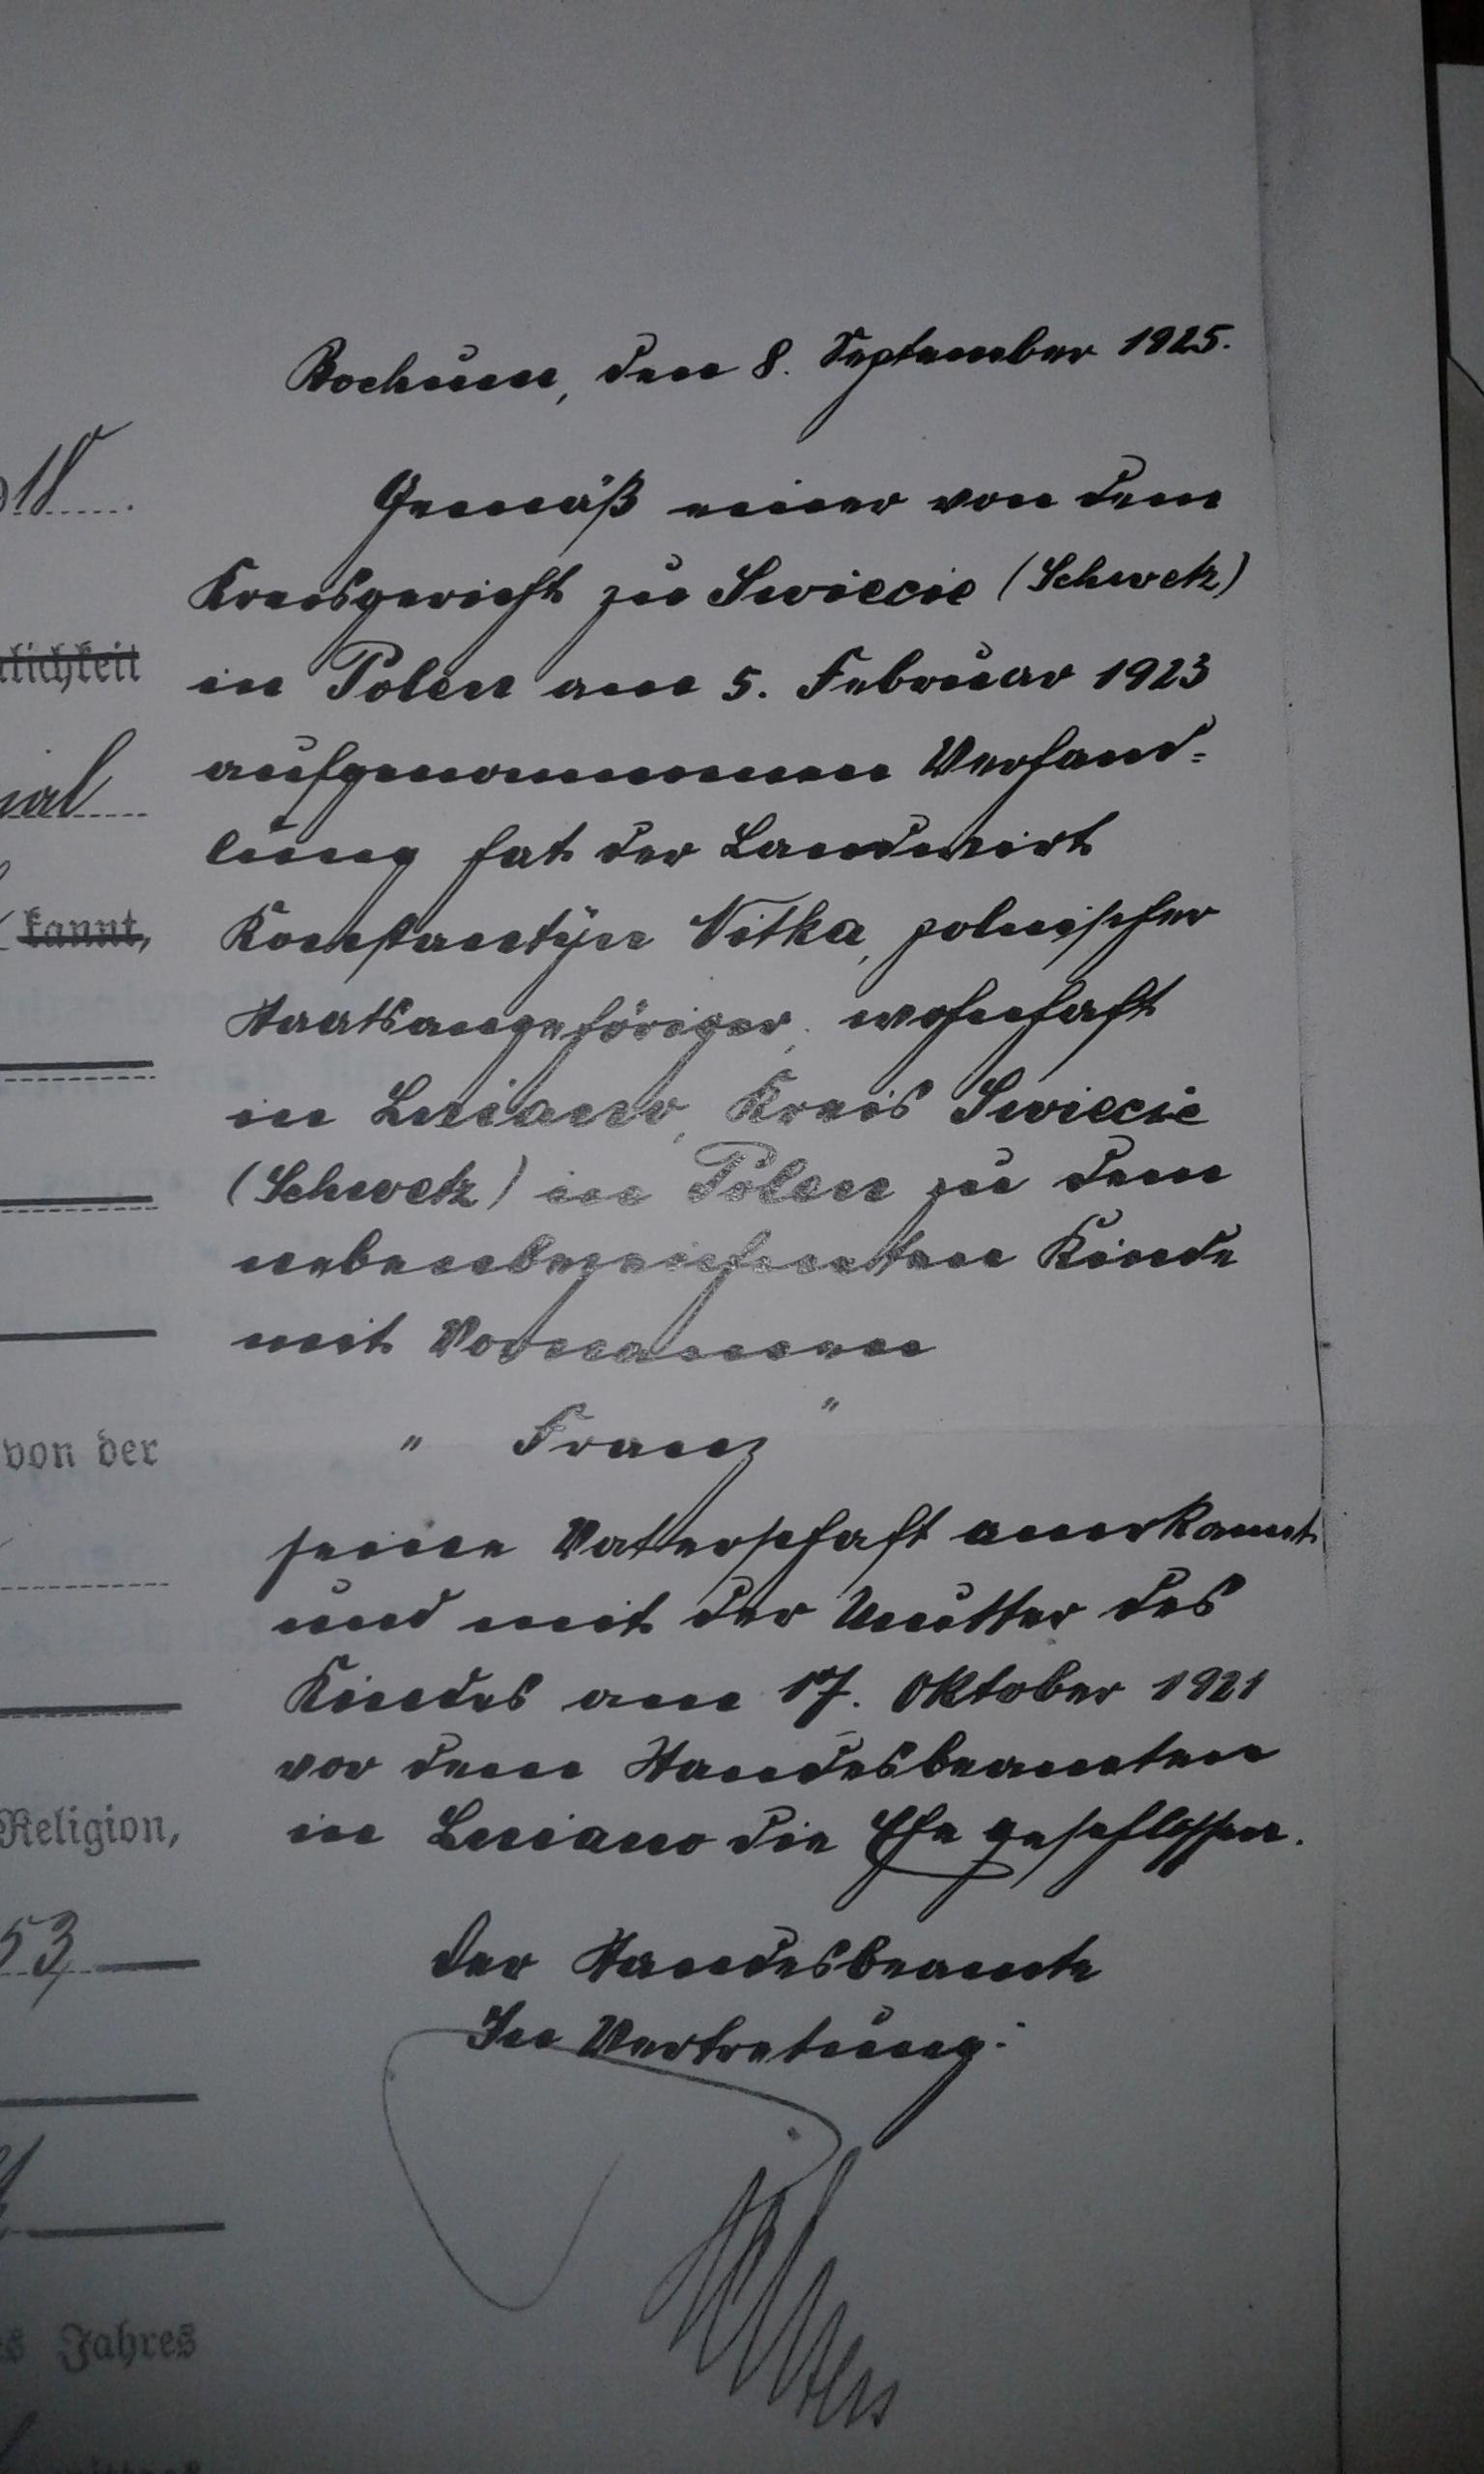 Bochum, den 8. September 1925.
18
Gemäß einer von dem
Kreisgericht zu Swiecie (Schwetz)
lichkeit
in Polen am 5. Februar 1923
aufgenommenen Verhand=
lung hat der Landwirt
kannt,
Konstantyn Nitka, polnischer
Staatsangehöriger, wohnhaft
in Lniano, Kreis Swiecie
(Schwetz) in Polen zu dem
nebenbezeichneten Kinde
mit Vornamen
" Franz "
von der
seine Vaterschaft anerkannt
und mit der Mutter des
Kindes am 17. Oktober 1921
vor dem Standesbeamten
Religion,
in Lniano die Ehe geschlossen.
53
Der Standesbeamte
In Vertretung:
Jahres